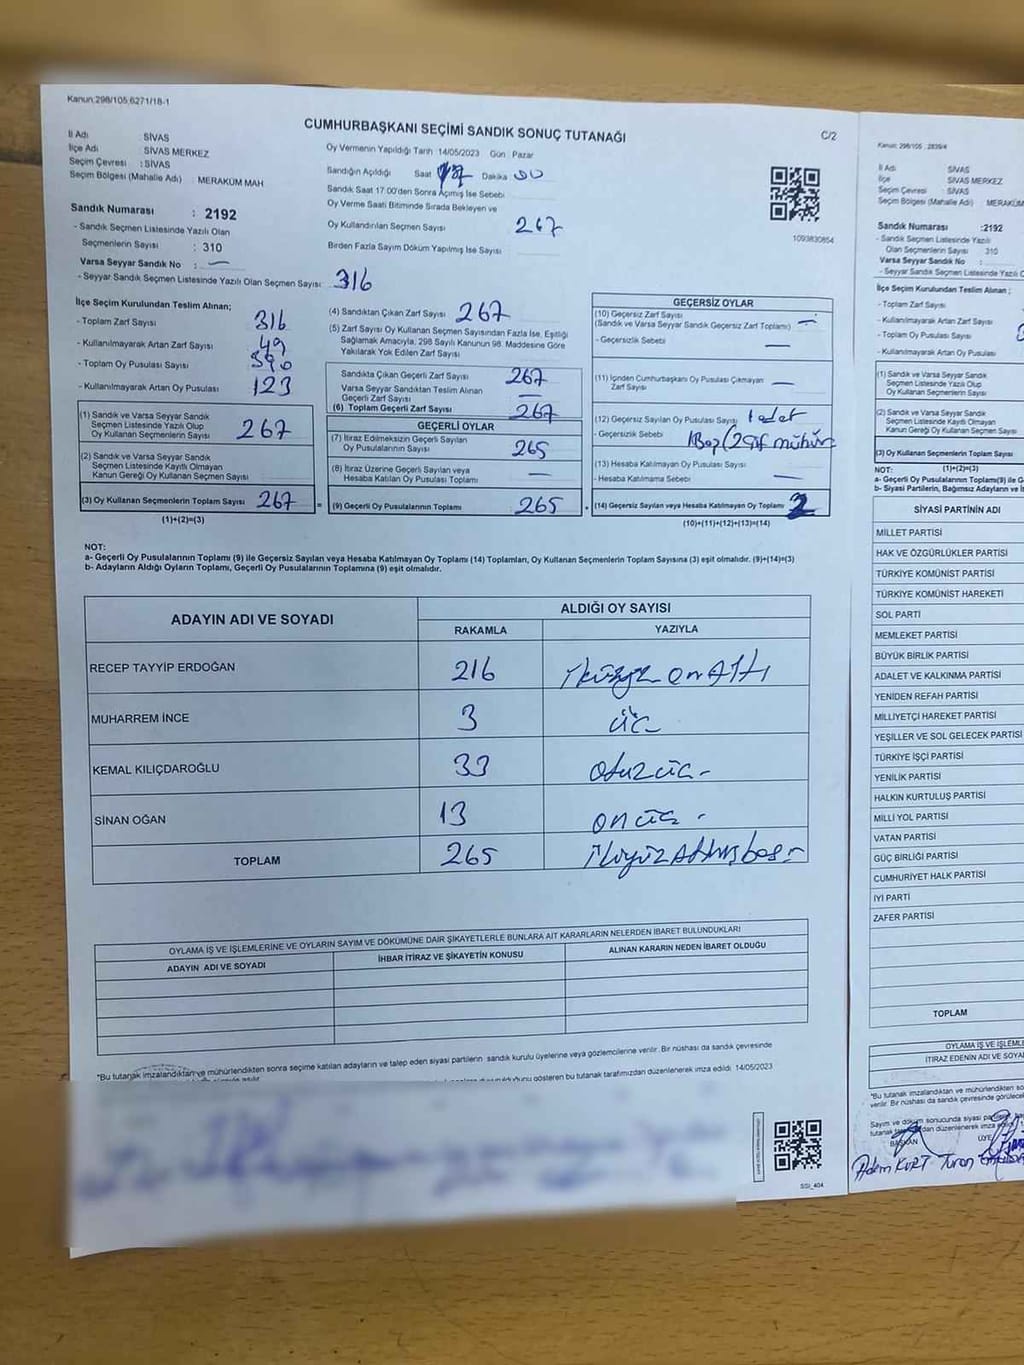 Kanun:298/105,6271/18-1
CUMHURBAŞKANI SEÇİMİ SANDIK SONUÇ TUTANAĞI
C/2
İl Adı SİVAS
İlçe Adı SİVAS MERKEZ
Seçim Çevresi : SİVAS
Seçim Bölgesi (Mahalle Adı) : MERAKÜM MAH
Oy Vermenin Yapıldığı Tarih 14/05/2023 Gün Pazar
Sandığın Açıldığı Saat 17 Dakika 00
Sandık Saat 17.00'den Sonra Açımış İse Sebebi
Oy Verme Saati Bitiminde Sırada Bekleyen ve
Oy Kullandırılan Seçmen Sayısı 267
Birden Fazla Sayım Döküm Yapılmış İse Sayısı
1093830854
Sandık Numarası : 2192
- Sandık Seçmen Listesinde Yazılı Olan
Seçmenlerin Sayısı : 310
Varsa Seyyar Sandık No : —
- Seyyar Sandık Seçmen Listesinde Yazılı Olan Seçmen Sayısı 316
İlçe Seçim Kurulundan Teslim Alınan;
- Toplam Zarf Sayısı 316
- Kullanılmayarak Artan Zarf Sayısı 49
- Toplam Oy Pusulası Sayısı 390
- Kullanılmayarak Artan Oy Pusulası 123
(1) Sandık ve Varsa Seyyar Sandık
Seçmen Listesinde Yazılı Olup
Oy Kullanan Seçmenlerin Sayısı 267
(2) Sandık ve Varsa Seyyar Sandık
Seçmen Listesinde Kayıtlı Olmayan
Kanun Gereği Oy Kullanan Seçmen Sayısı
(3) Oy Kullanan Seçmenlerin Toplam Sayısı 267
(1)+(2)=(3)
(4) Sandıktan Çıkan Zarf Sayısı 267
(5) Zarf Sayısı Oy Kullanan Seçmen Sayısından Fazla İse, Eşitliği
Sağlamak Amacıyla, 298 Sayılı Kanunun 98. Maddesine Göre
Yakılarak Yok Edilen Zarf Sayısı
Sandıkta Çıkan Geçerli Zarf Sayısı 267
Varsa Seyyar Sandıktan Teslim Alınan
Geçerli Zarf Sayısı —
(6) Toplam Geçerli Zarf Sayısı 267
GEÇERLİ OYLAR
(7) İtiraz Edilmeksizin Geçerli Sayılan
Oy Pusulalarının Sayısı 265
(8) İtiraz Üzerine Geçerli Sayılan veya
Hesaba Katılan Oy Pusulası Toplamı —
(9) Geçerli Oy Pusulalarının Toplamı 265
GEÇERSİZ OYLAR
(10) Geçersiz Zarf Sayısı
(Sandık ve Varsa Seyyar Sandık Geçersiz Zarf Toplamı) —
- Geçersizlik Sebebi —
(11) İçinden Cumhurbaşkanı Oy Pusulası Çıkmayan
Zarf Sayısı —
(12) Geçersiz Sayılan Oy Pusulası Sayısı 1 adet
- Geçersizlik Sebebi
(13) Hesaba Katılmayan Oy Pusulası Sayısı
- Hesaba Katılmama Sebebi —
(14) Geçersiz Sayılan veya Hesaba Katılmayan Oy Toplamı 2
(10)+(11)+(12)+(13)=(14)
NOT:
a- Geçerli Oy Pusulalarının Toplamı (9) ile Geçersiz Sayılan veya Hesaba Katılmayan Oy Toplamı (14) Toplamları, Oy Kullanan Seçmenlerin Toplam Sayısına (3) eşit olmalıdır. (9)+(14)=(3)
b- Adayların Aldığı Oyların Toplamı, Geçerli Oy Pusulalarının Toplamına (9) eşit olmalıdır.
ADAYIN ADI VE SOYADI ALDIĞI OY SAYISI
RAKAMLA YAZIYLA
RECEP TAYYİP ERDOĞAN 216 ikiyüz on altı
MUHARREM İNCE 3 üç
KEMAL KILIÇDAROĞLU 33 otuzüç
SİNAN OĞAN 13 onüç
TOPLAM 265 ikiyüz altmışbeş
OYLAMA İŞ VE İŞLEMLERİNE VE OYLARIN SAYIM VE DÖKÜMÜNE DAİR ŞİKAYETLERLE BUNLARA AİT KARARLARIN NELERDEN İBARET BULUNDUKLARI
ADAYIN ADI VE SOYADI İHBAR İTİRAZ VE ŞİKAYETİN KONUSU ALINAN KARARIN NEDEN İBARET OLDUĞU
*Bu tutanak imzalandıktan ve mühürlendikten sonra seçime katılan adayların ve talep eden siyasi partilerin sandık kurulu üyelerine veya gözlemcilerine verilir. Bir nüshası da sandık çevresinde
gösteren bu tutanak tarafımızdan düzenlenerek imza edildi. 14/05/2023
SSİ_404
Kanun: 298/105 , 2839/4
İl Adı SİVAS
İlçe SİVAS MERKEZ
Seçim Çevresi SİVAS
Seçim Bölgesi (Mahalle Adı) MERAKÜM
Sandık Numarası :2192
- Sandık Seçmen Listesinde Yazılı
Olan Seçmenlerin Sayısı 310
Varsa Seyyar Sandık No :
- Seyyar Sandık Seçmen Listesinde Yazılı
İlçe Seçim Kurulundan Teslim Alınan ;
- Toplam Zarf Sayısı
- Kullanılmayarak Artan Zarf Sayısı
- Toplam Oy Pusulası Sayısı
- Kullanılmayarak Artan Oy Pusulası
(1) Sandık ve Varsa Seyyar Sandık
Seçmen Listesinde Yazılı Olup
Oy Kullanan Seçmenlerin Sayısı
(2) Sandık ve Varsa Seyyar Sandık
Seçmen Listesinde Kayıtlı Olmayan
Kanun Gereği Oy Kullanan Seçmen Sayısı
(3) Oy Kullanan Seçmenlerin Toplam Sayısı
(1)+(2)=(3)
NOT:
a- Geçerli Oy Pusulalarının Toplamı(9) ile
b- Siyasi Partilerin, Bağımsız Adayların ve
SİYASİ PARTİNİN ADI
MİLLET PARTİSİ
HAK VE ÖZGÜRLÜKLER PARTİSİ
TÜRKİYE KOMÜNİST PARTİSİ
TÜRKİYE KOMÜNİST HAREKETİ
SOL PARTİ
MEMLEKET PARTİSİ
BÜYÜK BİRLİK PARTİSİ
ADALET VE KALKINMA PARTİSİ
YENİDEN REFAH PARTİSİ
MİLLİYETÇİ HAREKET PARTİSİ
YEŞİLLER VE SOL GELECEK PARTİSİ
TÜRKİYE İŞÇİ PARTİSİ
YENİLİK PARTİSİ
HALKIN KURTULUŞ PARTİSİ
MİLLİ YOL PARTİSİ
VATAN PARTİSİ
GÜÇ BİRLİĞİ PARTİSİ
CUMHURİYET HALK PARTİSİ
İYİ PARTİ
ZAFER PARTİSİ
TOPLAM
OYLAMA İŞ VE İŞLEML
İTİRAZ EDENİN ADI VE SOYA
*Bu tutanak imzalandıktan ve mühürlendikten
verilir. Bir nüshası da sandık çevresinde
Sayım ve döküm sonucunda siyasi
düzenlenerek imza edildi.
BAŞKAN ÜYE
Adem KURT Turan